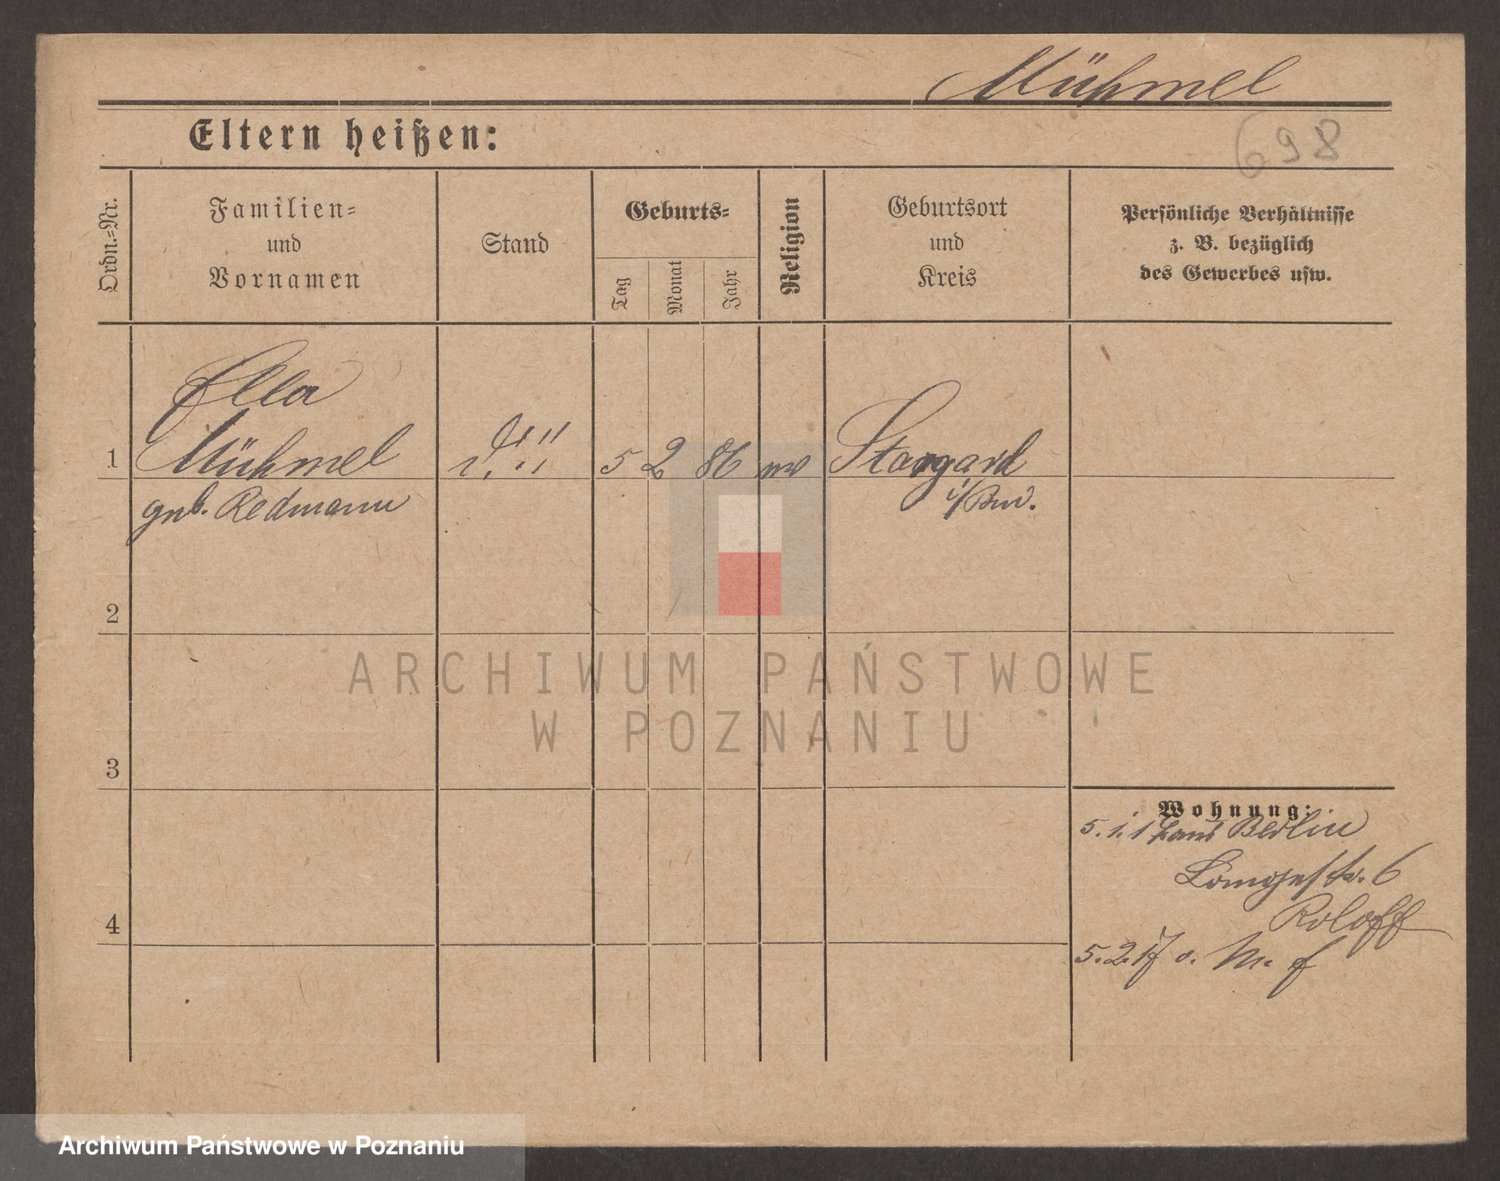 Mühmel
698
Eltern heißen:
Ordn.-Nr.
Familien-
und
Vornamen
Stand
Geburts-
Tag
Monat
Jahr
Religion
Geburtsort
und
Kreis
Persönliche Verhältnisse
z. B. bezüglich
des Gewerbes usw.
Ella
1 Mühmel 5 2 86 Stargard
geb. Redmann i/Pom.
2
ARCHIWUM PAŃSTWOWE
W POZNANIU
3
Wohnung:
Berlin
6
4 Roloff
5.2.17
Archiwum Państwowe w Poznaniu